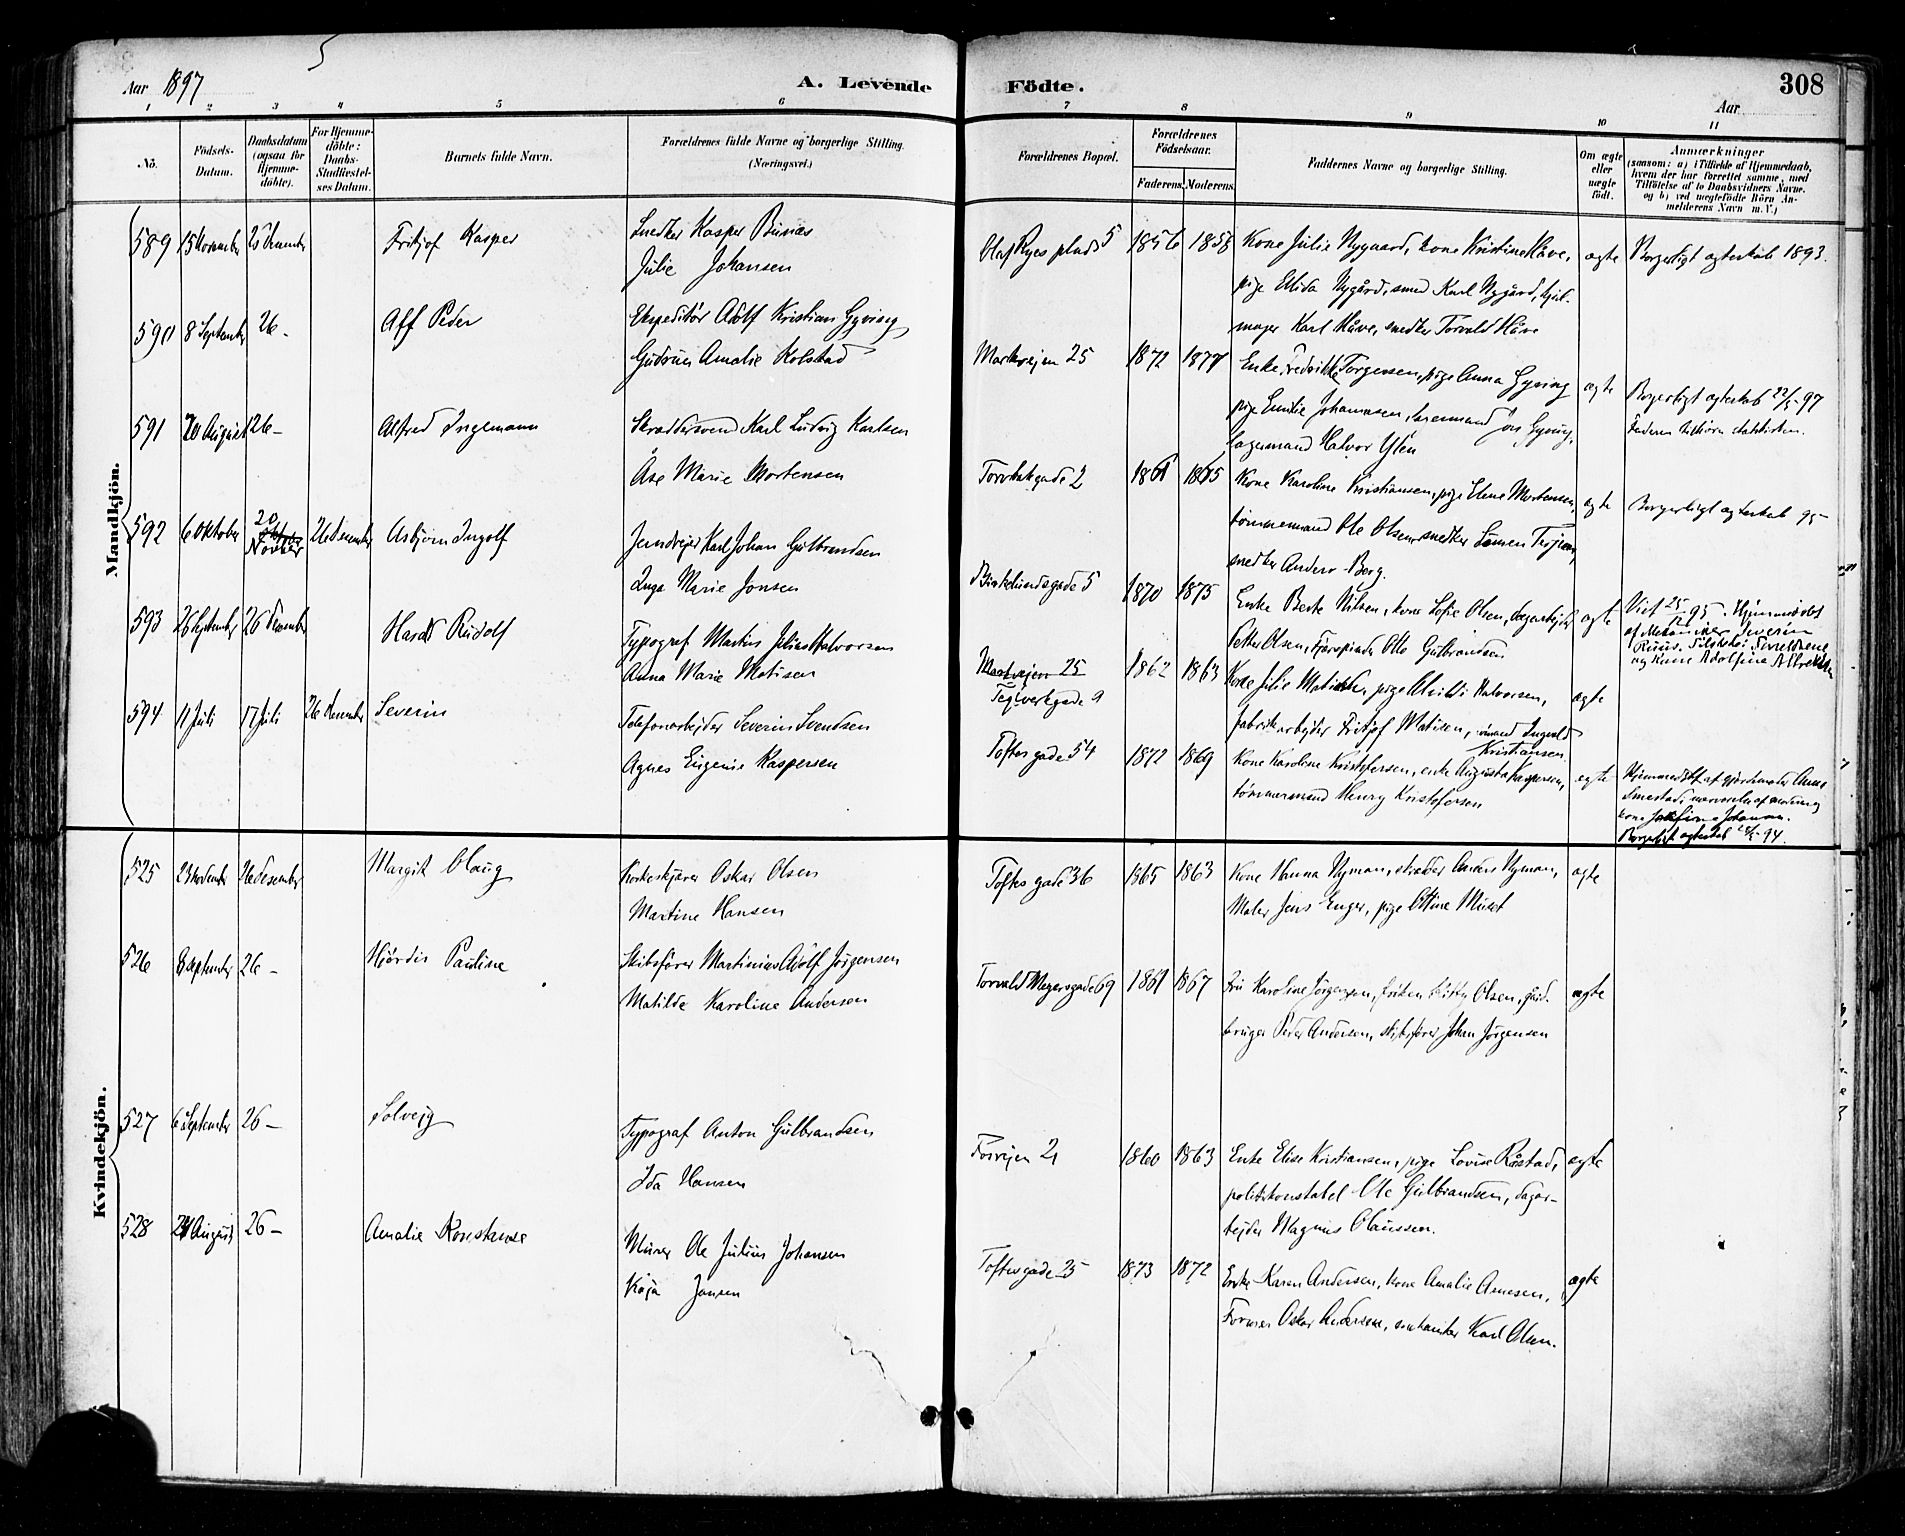 Aar 1897
A. Levende
Födte.
308
Aar
1 2 3 4 5 6 7 8 9 10 11
No.
Födsels-Datum.
Daabsdatum (ogsaa for Hjemmedöbte).
For Hjemmedöbte: Daabs-Stadfæstelses Datum.
Barnets fulde Navn.
Forældrenes fulde Navne og borgerlige Stilling. (Næringsvei.)
Forældrenes Bopæl.
Forældrenes Födselsaar.
Faderens. Moderens.
Faddernes Navne og borgerlige Stilling.
Om ægte eller uægte født.
Anmærkninger
(saasom: a) i Tilfælde af Hjemmedaab,
hvem der har forrettet samme, med
Tilföielse af to Daabsvidners Navne.
og b) ved uegtefödte Börn Anmelderens Navn m. V.)
Mandkjön.
589 15 November 25 Desember Fritjof Kasper Snedker Kasper Busnæs
Julie Johansen
Olaf Ryes plads 5 1856 1858 Kone Julie Nygaard, kone Kristine Håve,
pige Elida Nygård, smed Karl Nygård, hjul-
mager Karl Håve, snedker Torvald Håve
ægte Borgerligt ægteskab 1893.
590 8 September 26 - Alf Peder Ekspeditör Adolf Kristian Gyving
Gudrun Amalie Kolstad
Markvejen 25 1872 1877 Enke Fredrikke Torgersen, pige Anna Gyving
pige Emilie Johannesen, Jön Gyving,
lagermand Halvor Ylén
ægte Borgerligt ægteskab 22/5 97
Faderen
591 20 August 26 - Alfred Ingemann Skræddersvend Karl Ludvig Karlsen
Åse Marie Mortensen
gade 2 1861 1865 Kone Karoline Kristiansen, pige Elene Mortensen,
tömmermand Ole Olsen, snedker
snedker Anders Berg.
ægte Borgerligt ægteskab 95
592 6 Oktober 20 November 26 Desember Asbjörn Ingolf Jerndrejer Karl Johan Gulbrandsen
Inga Marie Jonsen
Birkelundsgade 5 1870 1875 Enke Berte Nilsen, kone Sofie Olsen, dagarbejder
Petter Olsen, Otto Gulbrandsen
ægte Viet 25/12 95. Hjemmedöbt
af Mekaniker Severin
Ruus. Tilstede: Forældrene
og Kone Adolfine
593 26 September 26 Desember Harald Rudolf Typograf Martin Julius Halvorsen
Anna Marie Matisen
Markvejen 25
Teglverkgade 9 1862 1863 Kone Julie Matisen, pige Halvorsen,
fabrikarbejder Fritjof Matisen, Ingvald
Kristiansen
ægte
594 11 Juli 17 Juli 26 Desember Severin Telefonarbejder Severin Svendsen
Agnes Eugenie Kaspersen
Toftesgade 54 1872 1869 Kone Karoline Kristofersen, enke Augusta Kaspersen,
tömmermand Henry Kristofersen
ægte Hjemmedöbt af gjordemoder Anna
Smestad, nærværelse af moderen og
kone Josefine Johansen.
Borgerligt ægteskab 94.
Kvindekjön.
525 23 November 26 desember Margit Olaug Korkeskjærer Oskar Olsen
Martine Hansen
Toftesgade 36 1865 1863 Kone Hanna Nyman, skræder Anders Nyman,
Maler Jens Enger, pige Otine Muset
ægte
526 8 september 26 - Hjördis Pauline Skibsförer Martinius Adolf Jörgensen
Matilde Karoline Andersen
Torvald Meyersgade 69 1861 1867 Fru Karoline Jörgensen, fröken Kitty Olsen, gård-
bruger Peder Andersen, skibsförer Johan Jörgensen
ægte
527 6 September 26 - Solveig Typograf Anton Gulbrandsen
Ida Hansen
Fosvejen 21 1860 1863 Enke Elise Kristiansen, pige Lovise Råstad,
politikonstabel Ole Gulbrandsen, dagar-
bejder Magnus Olaussen.
ægte
528 24 August 26 - Amalie Konstanse Murer Ole Julius Johansen
Kaja Jansen
Toftesgade 25 1873 1872 Enke Karen Andersen, kone Amalie Arnesen,
Former Oskar Andersen, mekaniker Karl Olsen.
ægte